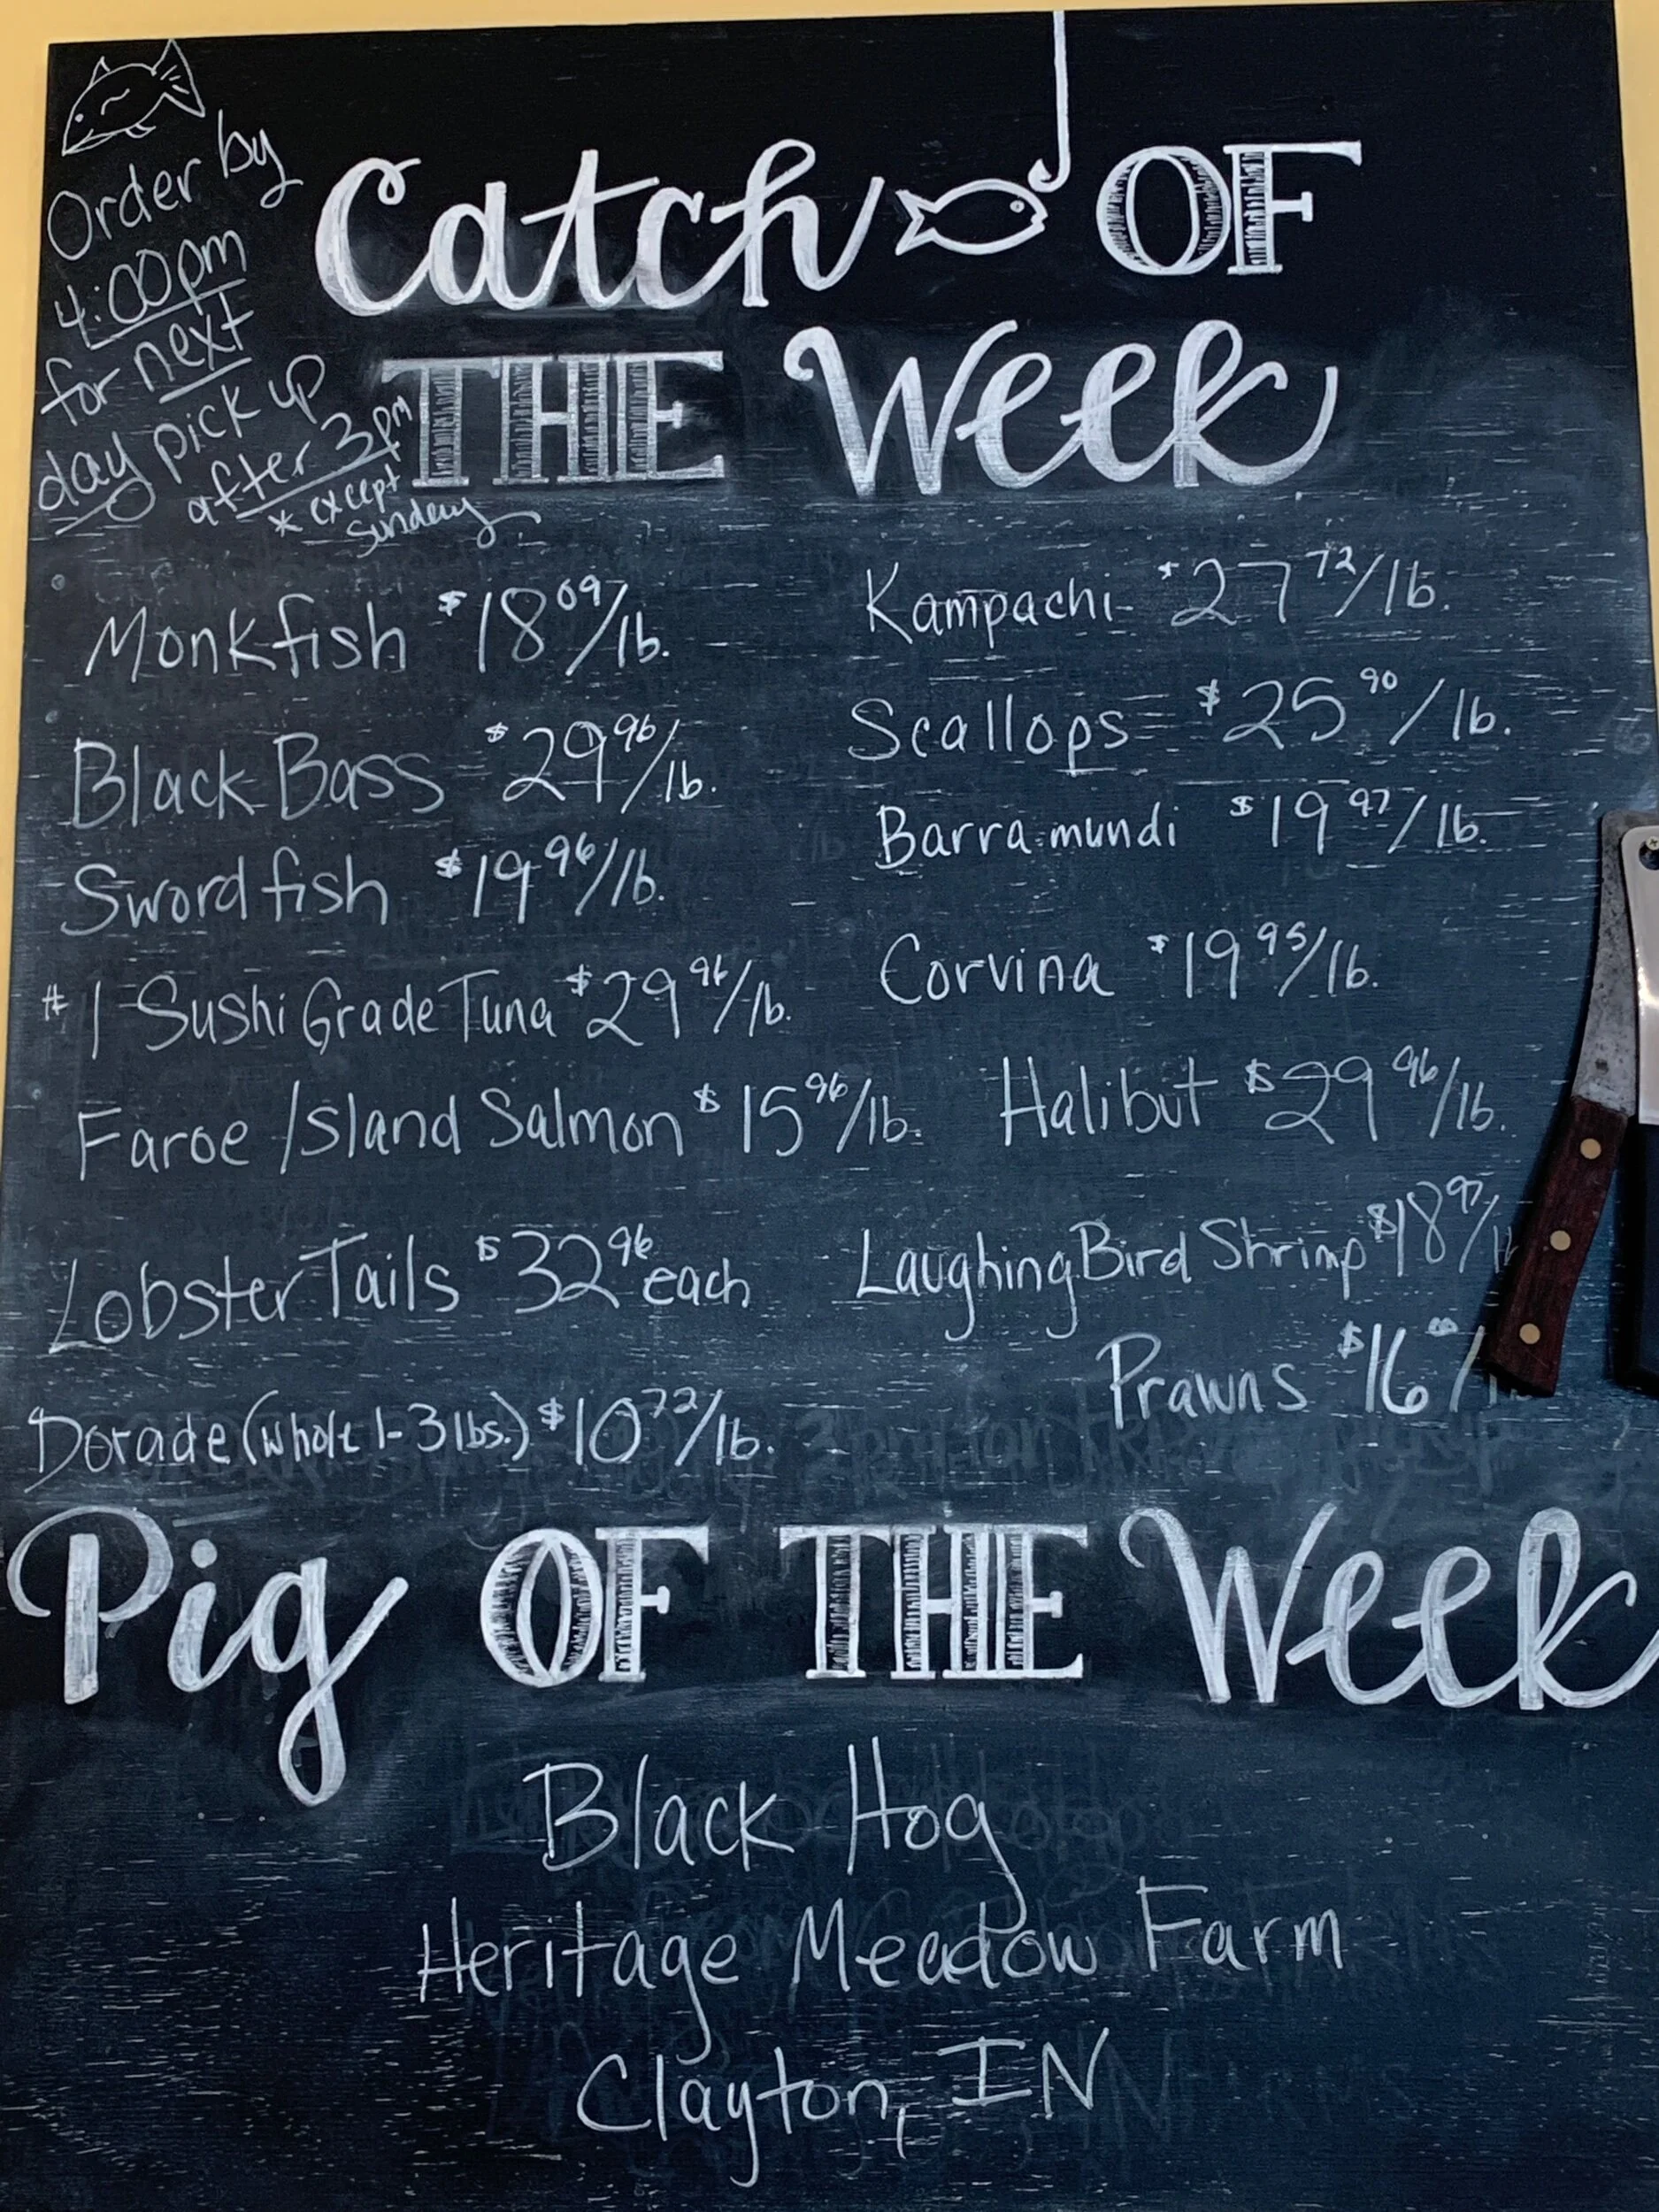 Order by
4:00pm
for next
day pick up
after 3pm
* except
Sunday
Catch OF
THE Week
Monkfish $18.09/lb.
Black Bass $29.96/lb.
Swordfish $19.96/lb.
#1 Sushi Grade Tuna $29.96/lb.
Faroe Island Salmon $15.96/lb.
Lobster Tails $32.96 each
Dorade (whole 1-3 lbs.) $10.72/lb.
Kampachi $27.72/lb.
Scallops $25.90/lb.
Barramundi $19.97/lb.
Corvina $19.95/lb.
Halibut $29.96/lb.
Laughing Bird Shrimp $18.97/
Prawns $16
Pig OF THE Week
Black Hog
Heritage Meadow Farm
Clayton, IN